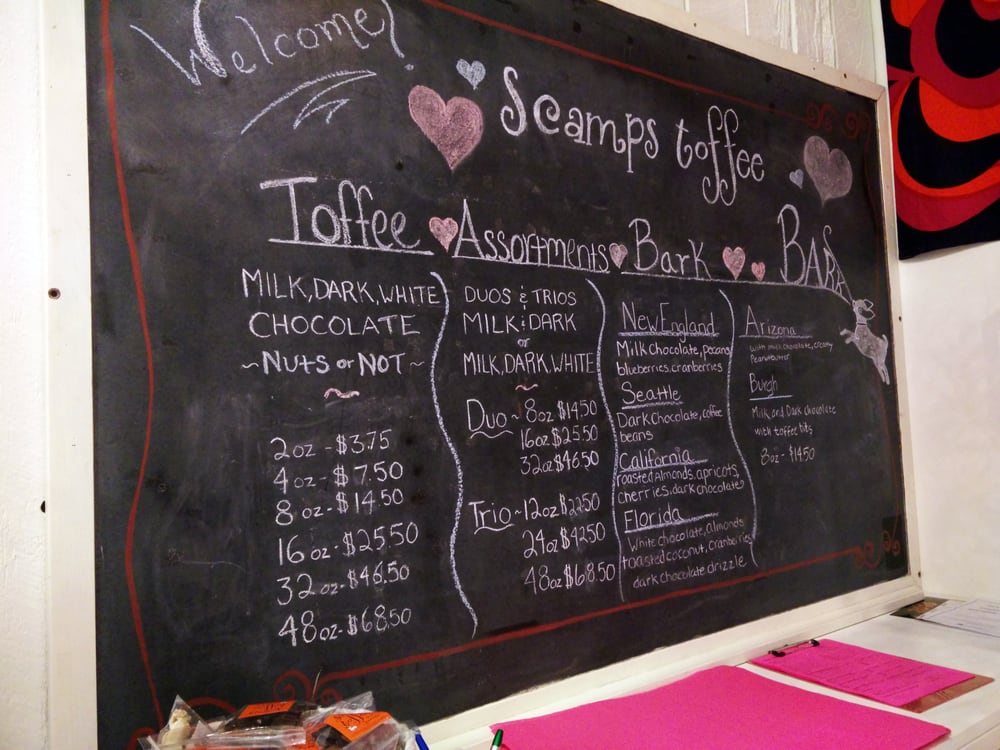 Welcome!
Scamps toffee
Toffee
MILK, DARK, WHITE
CHOCOLATE
~NUTS or NOT~
2oz - $3.75
4oz - $7.50
8oz - $14.50
16oz - $25.50
32oz - $46.50
48oz - $68.50
Assortments
DUOS & TRIOS
MILK & DARK
or
MILK, DARK, WHITE
Duo ~ 8oz $14.50
16oz $25.50
32oz $46.50
Trio ~ 12oz $22.50
24oz $42.50
48oz $68.50
Bark
New England
Milk Chocolate, pecans,
blueberries, cranberries
Seattle
Dark Chocolate, coffee
beans
California
roasted Almonds, apricots,
cherries, dark chocolate
Florida
White chocolate, almonds
toasted coconut, cranberries
dark chocolate drizzle
BAR
Arizona
with milk chocolate, creamy
Peanutbutter
Burgh
Milk and Dark chocolate
with toffee bits
8oz - $14.50